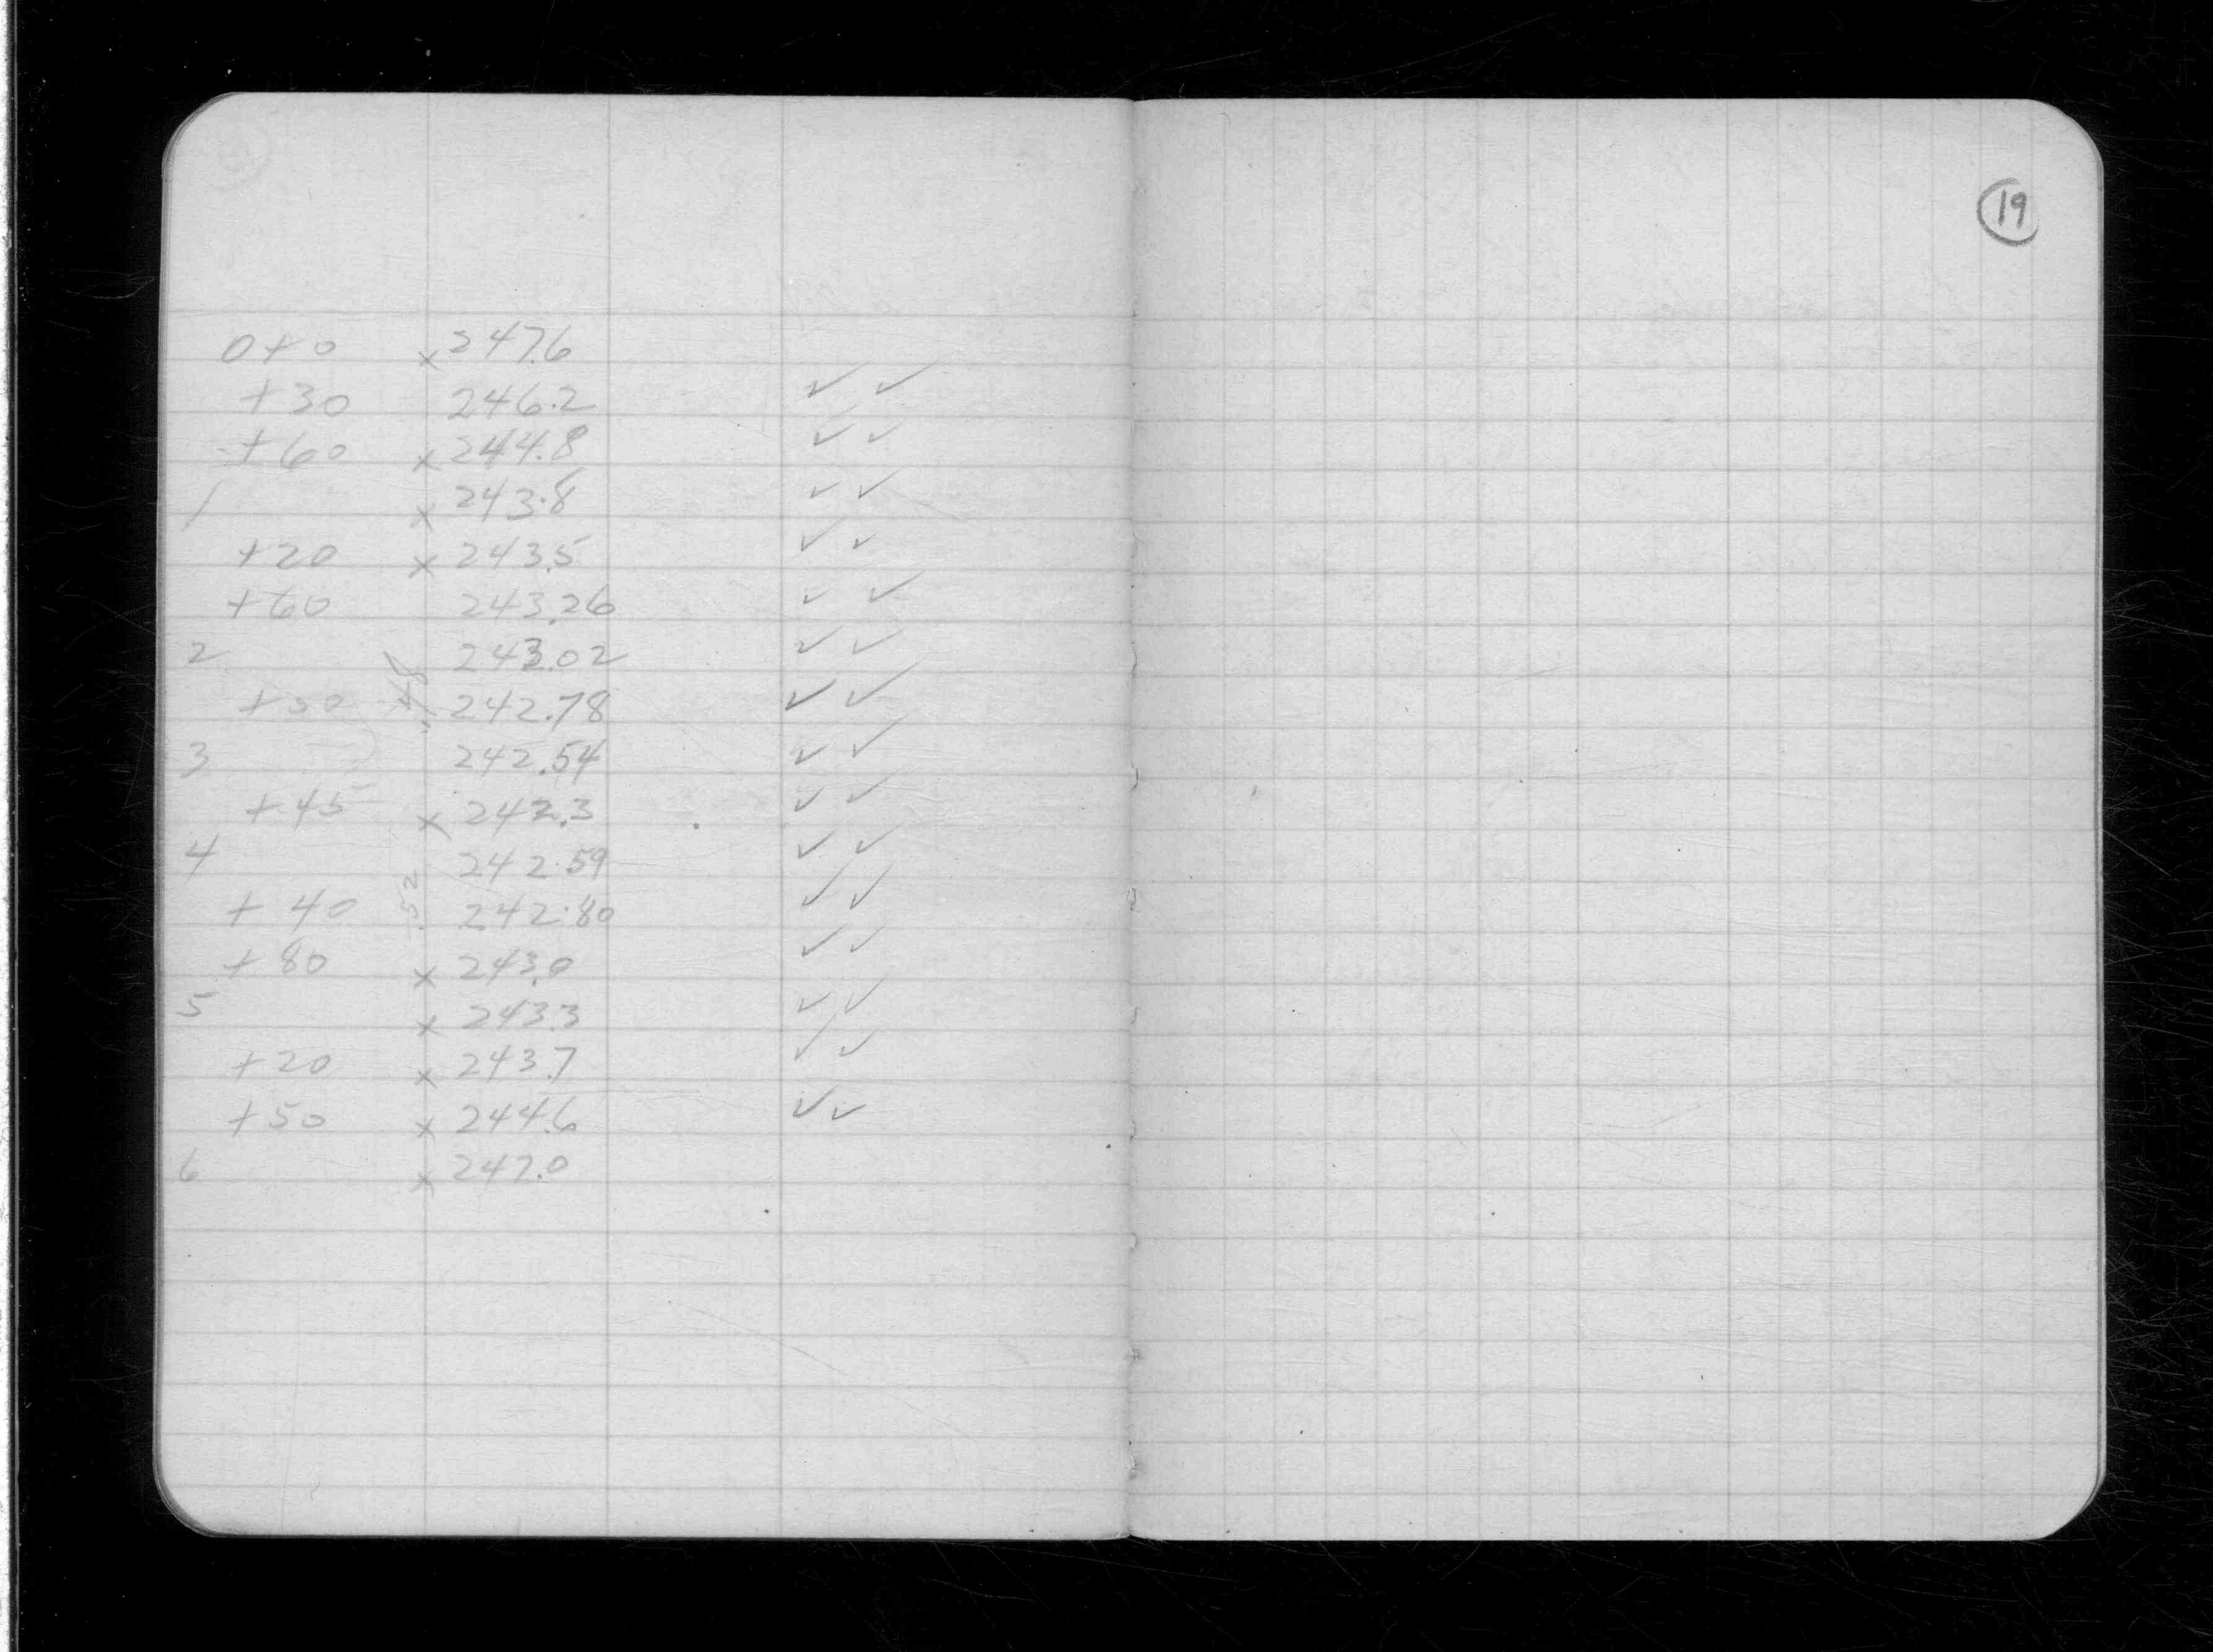 19
0+0 x 247.6
+30 246.2 ✓ ✓
+60 x 244.8 ✓ ✓
1 x 243.8 ✓ ✓
+20 x 243.5 ✓ ✓
+60 243.26 ✓ ✓
2 243.02 ✓ ✓
+50 242.78 ✓ ✓
3 242.54 ✓ ✓
+45 x 242.3 ✓ ✓
4 242.59 ✓ ✓
+40 .52 242.80 ✓ ✓
+80 x 243.0 ✓ ✓
5 x 243.3 ✓ ✓
+20 x 243.7 ✓ ✓
+50 x 244.6 ✓ ✓
6 x 247.0